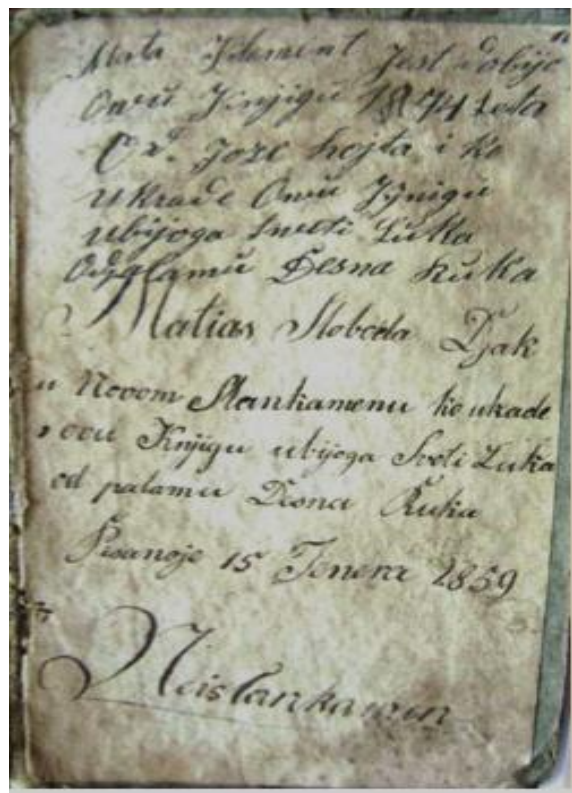 Mata Klement Jest dobijo
Ovu Knjigu 1874 Leta
Od. Joze hojta i ko
ukrade Ovu Jgnigu
ubijoga Sveti Luka
Odpalamu Desna Ruka
Matias Sloboda Djak
u Novom Slankamenu ko ukade
ovu Knjigu ubijoga Sveti Luka
od palamu Desna Ruka
Pisanoje 15 Jenera 1859
Neislankamen